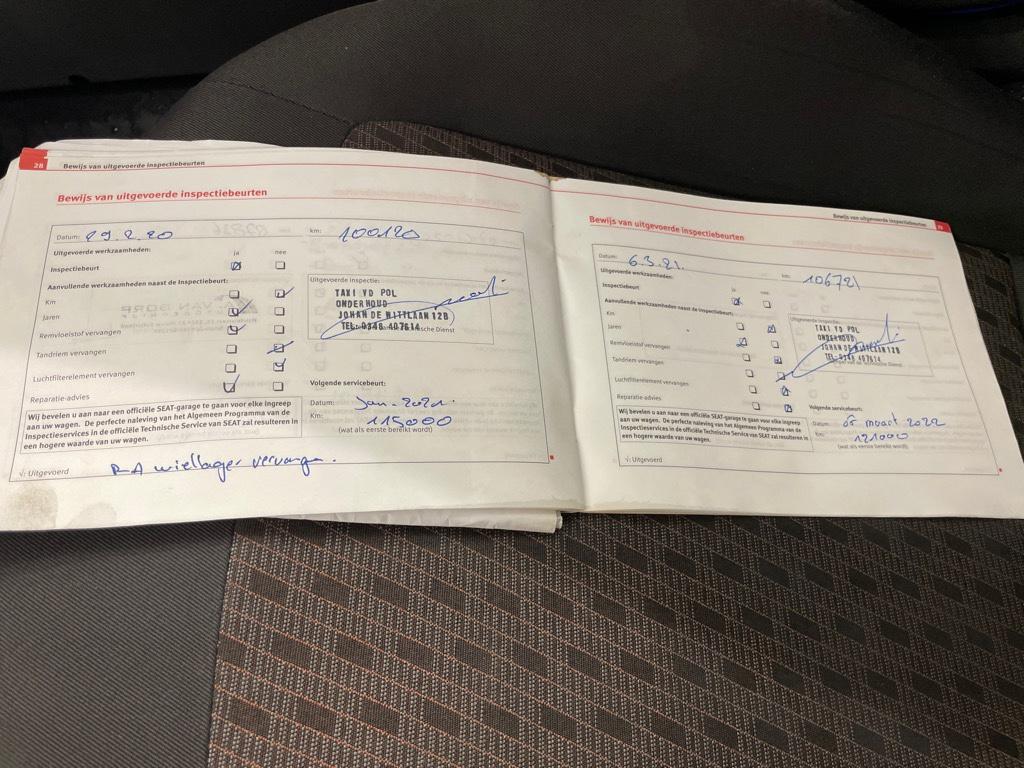 28 Bewijs van uitgevoerde inspectiebeurten
Bewijs van uitgevoerde inspectiebeurten
Datum: 29.2.20 km: 100120
Uitgevoerde werkzaamheden: ja nee
Inspectiebeurt
Aanvullende werkzaamheden naast de Inspectiebeurt:
Km
Jaren
Remvloeistof vervangen
Tandriem vervangen
Luchtfilterelement vervangen
Reparatie-advies
Uitgevoerde inspectie:
TAXI VD POL
ONDERHOUD
JOHAN DE WITTLAAN 12B
TEL: 0348 407614
Technische Dienst
Volgende servicebeurt:
Datum: Jan-2021
Km: 115000
(wat als eerste bereikt wordt)
Wij bevelen u aan naar een officiële SEAT-garage te gaan voor elke ingreep
aan uw wagen. De perfecte naleving van het Algemeen Programma van de
Inspectieservices in de officiële Technische Service van SEAT zal resulteren in
een hogere waarde van uw wagen.
√: Uitgevoerd
RA wiellager vervangen.
Bewijs van uitgevoerde inspectiebeurten
Bewijs van uitgevoerde inspectiebeurten
Datum: 6.3.21. km: 106721
Uitgevoerde werkzaamheden: ja nee
Inspectiebeurt
Aanvullende werkzaamheden naast de Inspectiebeurt:
Km
Jaren
Remvloeistof vervangen
Tandriem vervangen
Luchtfilterelement vervangen
Reparatie-advies
Uitgevoerde inspectie:
TAXI VD POL
ONDERHOUD
JOHAN DE WITTLAAN 12B
TEL: 0348 407614
Technische Dienst
Volgende servicebeurt:
Datum: 05 maart 2022
Km: 121000
(wat als eerste bereikt wordt)
Wij bevelen u aan naar een officiële SEAT-garage te gaan voor elke ingreep
aan uw wagen. De perfecte naleving van het Algemeen Programma van de
Inspectieservices in de officiële Technische Service van SEAT zal resulteren in
een hogere waarde van uw wagen.
√: Uitgevoerd